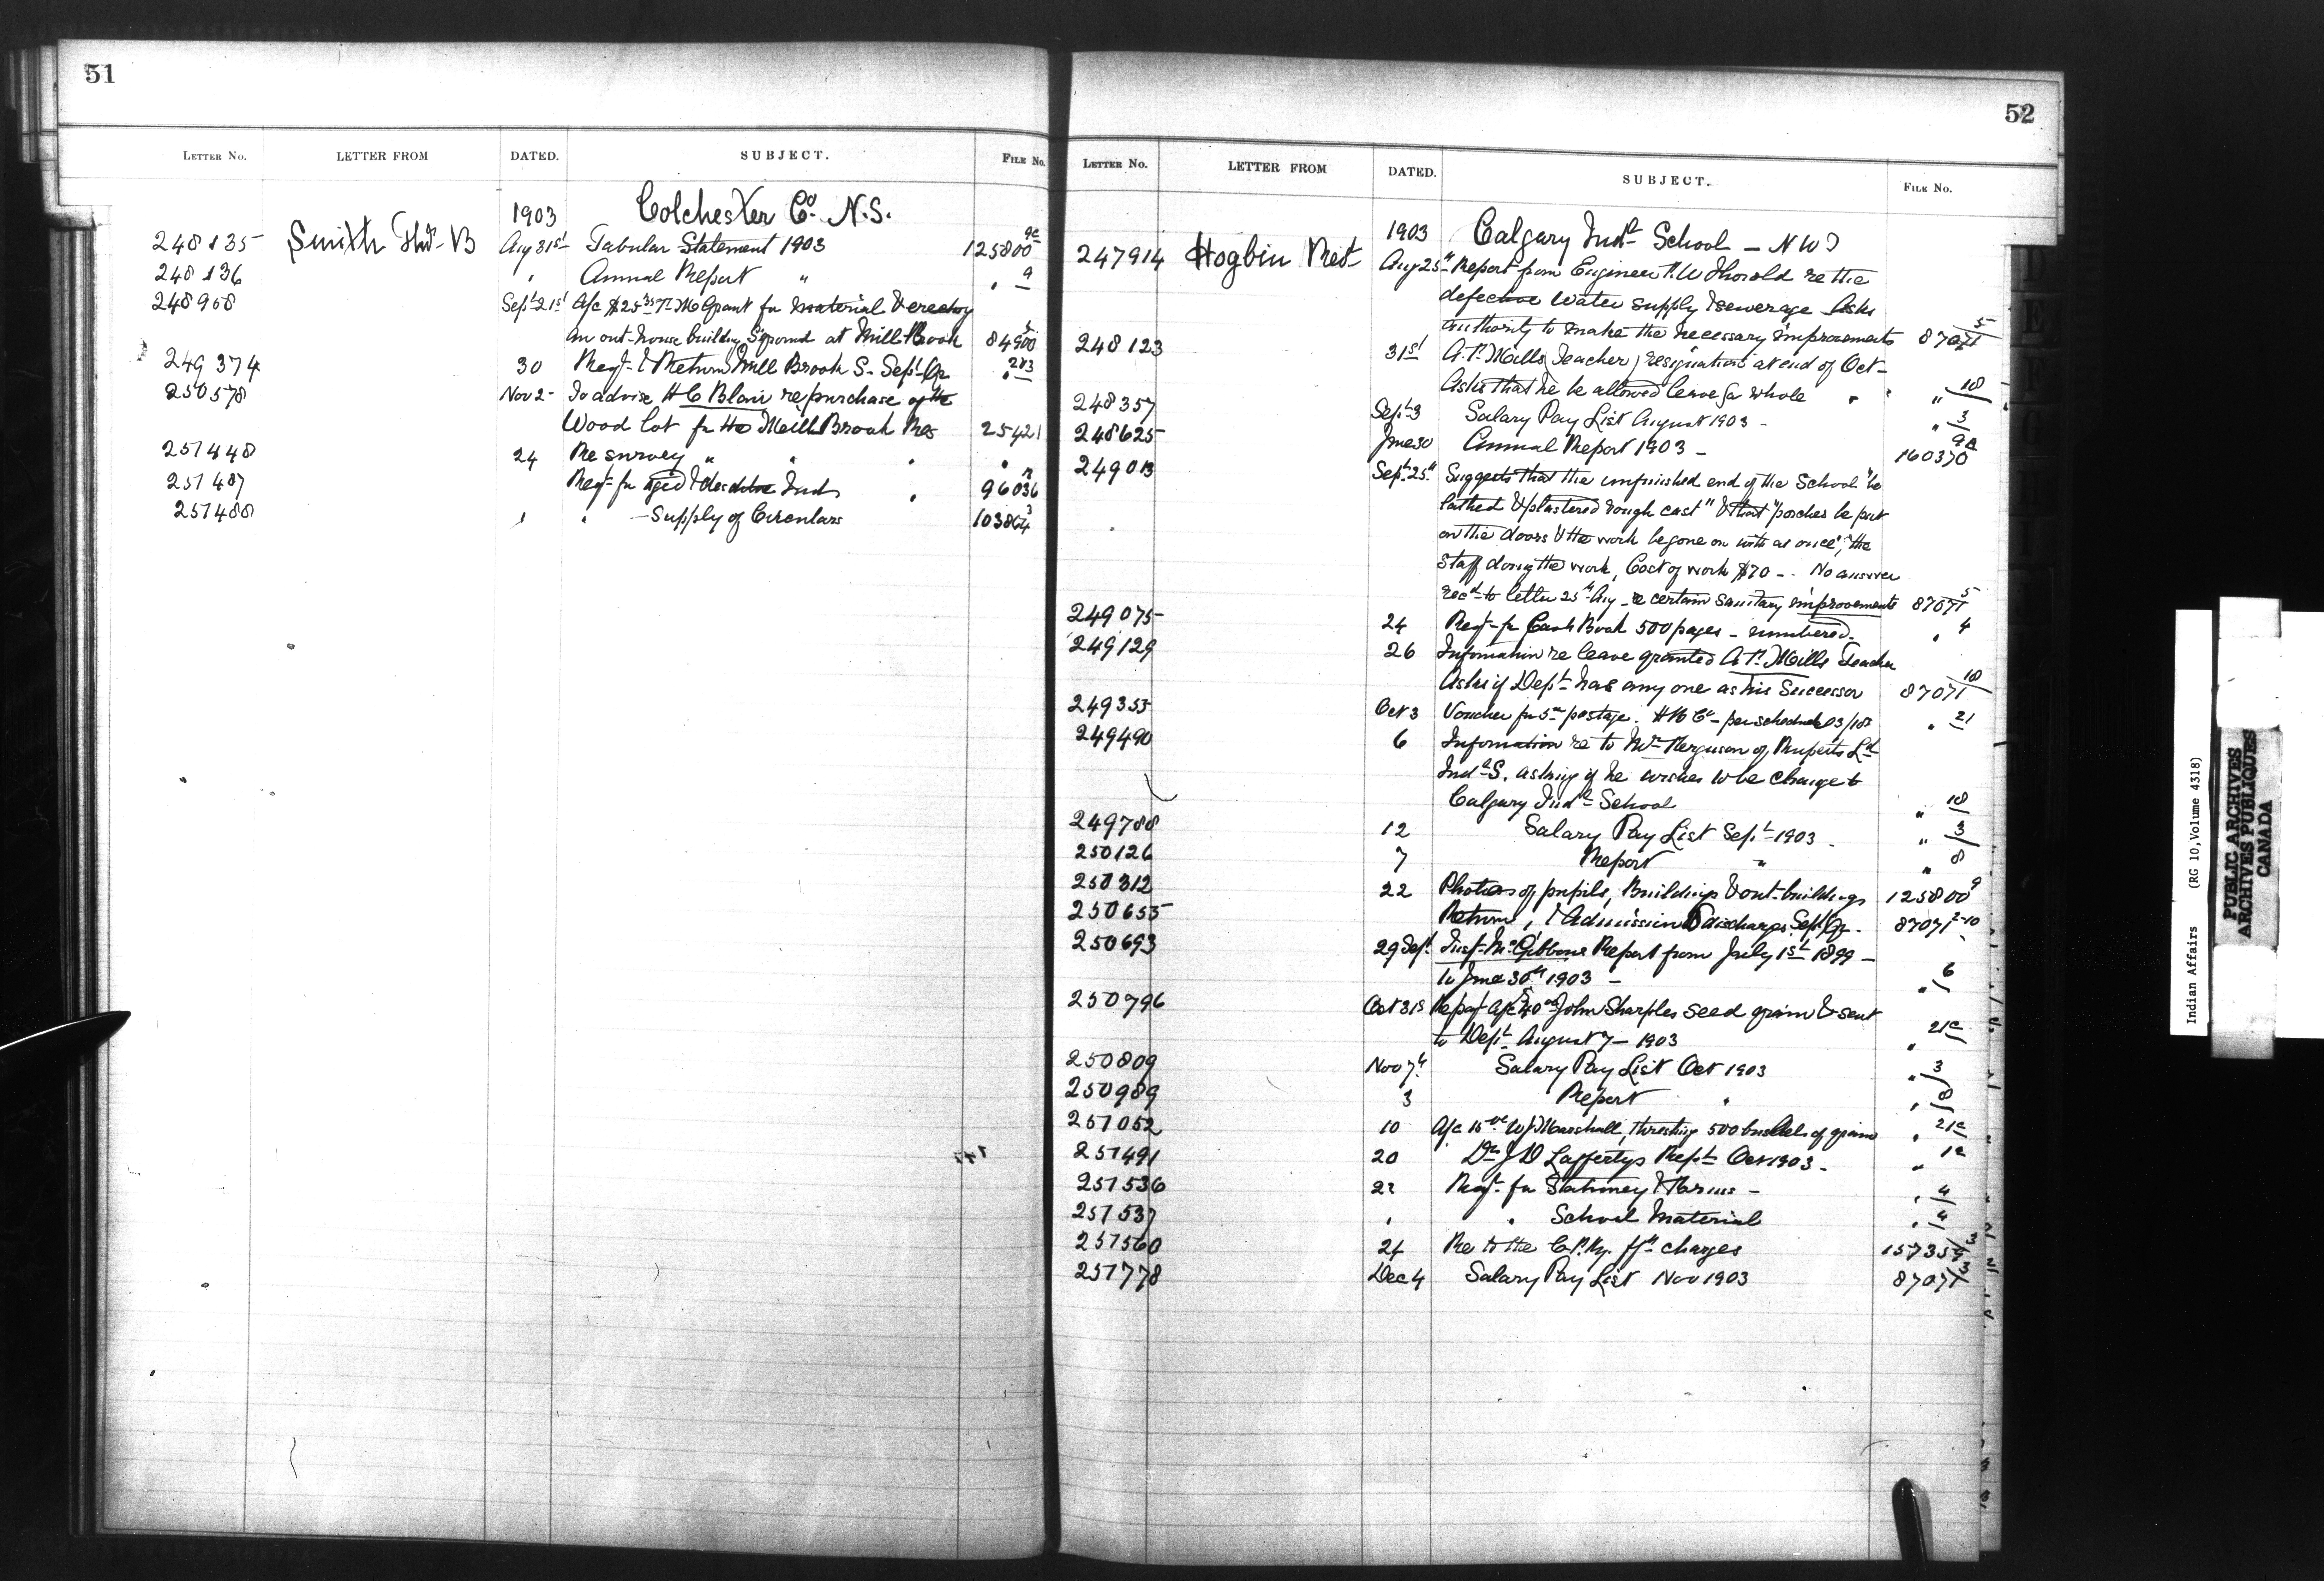 51
LETTER No. LETTER FROM DATED. SUBJECT. FILE No.
1903 Colchester Co. N.S.
248135 Smith Thos. B Aug 31st Tabular Statement 1903 125800 9c
248136 " Annual Report " " 9
248958 Sept 21st A/c $25 Grant for material & erecting
an out-house building & pound at Mill Brook 84900 5
249374 30 Reqt. & Return Mill Brook S. Sept Qr " 2&3
250578 Nov 2 To advise H C Blair re purchase of the
Wood lot for the Mill Brook Res 25421
251448 24 Re survey " " " "
251487 Reqt. for aged & destitute Inds " 96036
251488 " " Supply of Circulars 103864 3
52
LETTER No. LETTER FROM DATED. SUBJECT. FILE No.
1903 Calgary Indl School - N W T
247914 Hogbin Revd Aug 25th Report from Engineer Thorold re the
defective water supply & sewerage Asks
authority to make the necessary improvements 87071 5
248123 31st A. P. Mills (Teacher) resignation at end of Oct -
Asks that he be allowed leave for whole " " " 18
248357 Sept 3 Salary Pay List August 1903 - " 3
248625 June 30 Annual Report 1903 - 160370 9A
249013 Sept 25th Suggests that the unfinished end of the School "be
lathed & plastered rough cast" & that "porches be put
on the doors & the work be gone on with at once", the
Staff doing the work, Cost of work $70 - - No answer
recd to letter 25th Aug - re certain sanitary improvements 87071 5
249075 24 Reqt - for Cash Book 500 pages - numbered. " 4
249129 26 Information re leave granted A. P. Mills Teacher
Asks if Dept has any one as his Successor 87071 18
249353 Oct 3 Voucher for postage. H B Co - per schedule 03/103 " 21
249490 6 Information re to Mr Ferguson of Ruperts Ld
Indl S. asking if he wishes to be change to
Calgary Indl School " 18
249788 12 Salary Pay List Sept - 1903 - " 3
250126 7 Report " " 8
250312 22 Photos of pupils, Buildings & out-buildings 125800 9
250655 Returns, & Admission & discharges Sept Qr - 87071 2-10
250693 29 Sept Insp. McGibbons Report from July 1st 1899 -
to June 30th 1903 - " 6
250796 Oct 31s Report A/c John Sharples seed grain & sent
to Dept August 7 - 1903 " 21c
250809 Nov 7th Salary Pay List Oct 1903 " 3
250989 3 Report " " 8
251052 10 A/c 15 W J Marshall, thrashing 500 bushels of grain " 21c
251491 20 Dr J D Laffertys Rept Oct 1903 - " 1a
251536 22 Reqt. for Stationery & Forms - " 4
251537 " " School Material " 4
251560 24 Re to the C.P. Ry. frt charges 157359 3
251778 Dec 4 Salary Pay List Nov 1903 87071 3
D
E
F
G
H
I
Indian Affairs (RG 10, Volume 4318)
PUBLIC ARCHIVES
ARCHIVES PUBLIQUES
CANADA